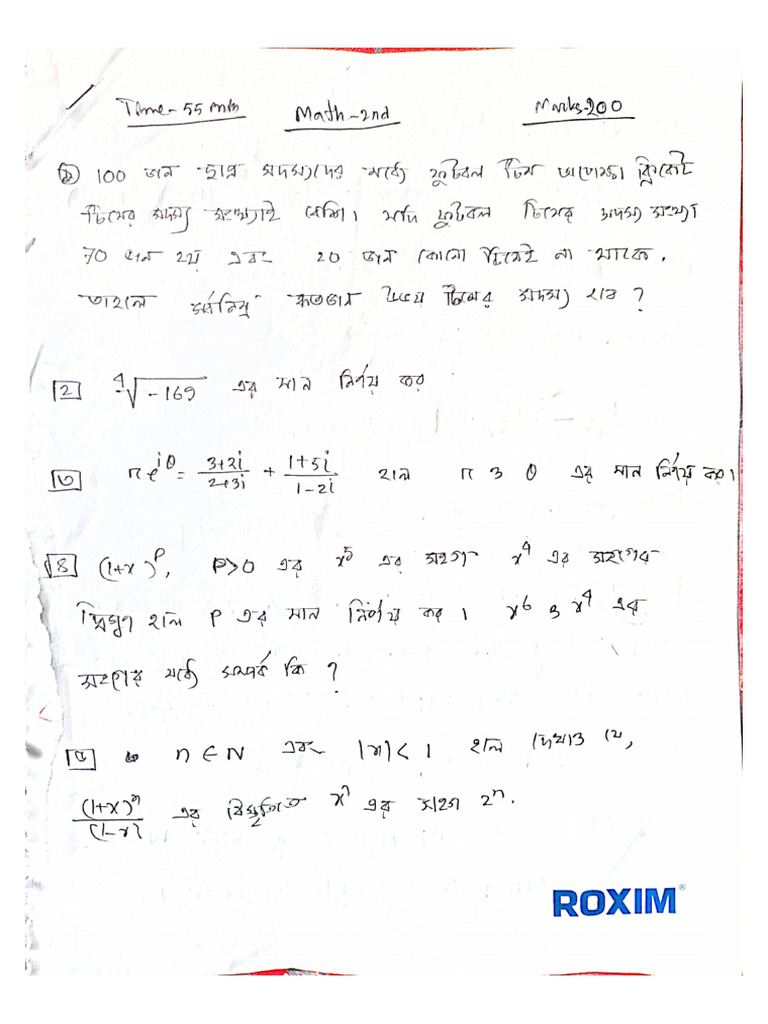 Time-55 min Math-2nd Marks-200
১) 100 জন ছাত্র সদস্যদের মধ্যে ফুটবল টিম অপেক্ষা ক্রিকেট
টিমের সদস্য সংখ্যাই বেশি। যদি ফুটবল টিমের সদস্য সংখ্যা
70 জন হয় এবং 20 জন কোনো টিমেই না থাকে,
তাহলে সর্বনিম্ন কতজন উভয় টিমের সদস্য হবে ?
2 4√-169 এর মান নির্ণয় কর
৩ re^iθ = (3+2i)/(2+3i) + (1+5i)/(1-2i) হলে r ও θ এর মান নির্ণয় কর।
৪ (1+x)^p, p>0 এর x^5 এর সহগ x^4 এর সহগের
দ্বিগুণ হলে p এর মান নির্ণয় কর। x^6 ও x^4 এর
সহগের মধ্যে সম্পর্ক কি ?
৫ n ∈ N এবং |x| < 1 হলে দেখাও যে,
(1+x)^n/(1-x) এর বিস্তৃতিতে x^n এর সহগ 2^n.
ROXIM®